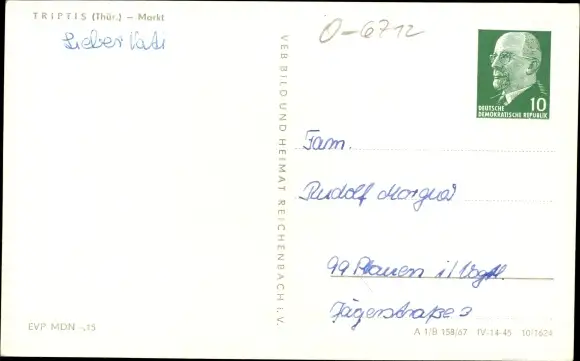 TRIPTIS (Thür.) – Markt
Lieber Vati
O-6712
VEB BILD UND HEIMAT REICHENBACH i. V.
10
DEUTSCHE
DEMOKRATISCHE REPUBLIK
Fam.
Rudolf
99 Plauen i/Vogtl.
Jägerstraße 3
EVP MDN -,15
A 1/B 158/67 IV-14-45 10/1624